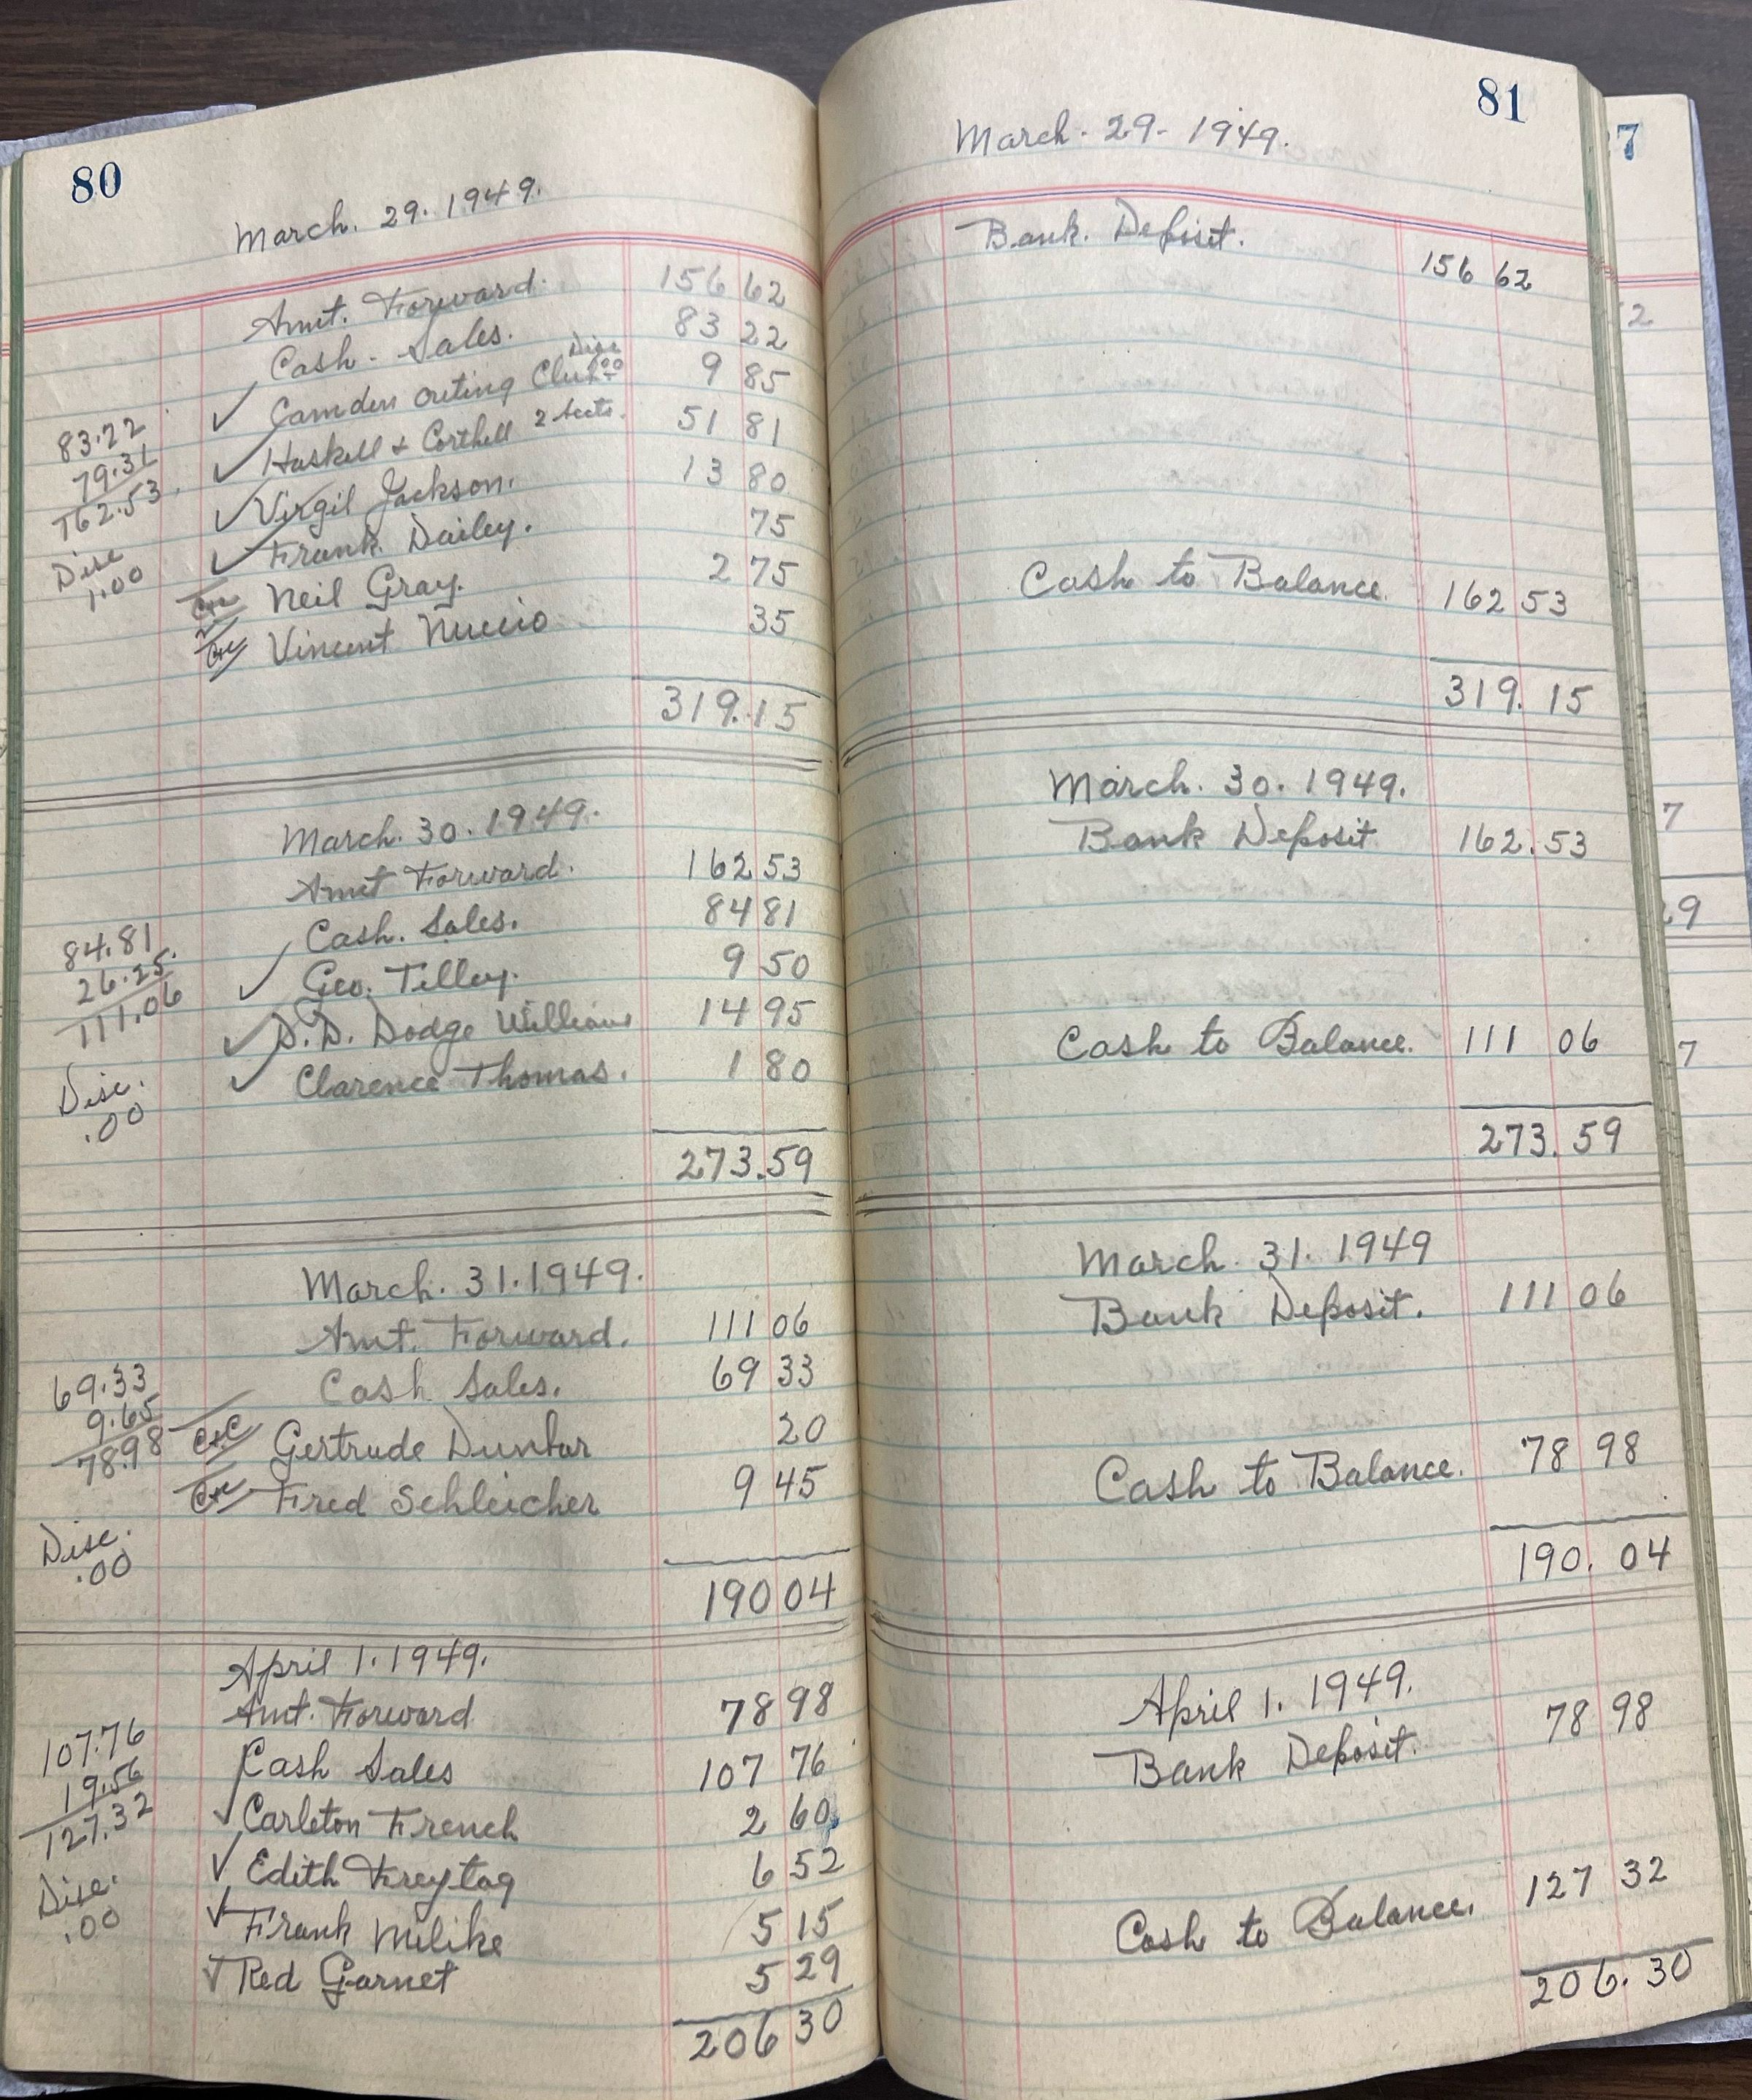 80
March. 29. 1949.
Amt. Forward. 156 62
Cash - Sales. 83 22
✓ Camden Outing Club Disc 1.00 9 85
✓ Haskell & Corthell 2 accts. 51 81
✓ Virgil Jackson. 13 80
✓ Frank Dailey. 75
Neil Gray. 2 75
Vincent Nuccio 35
319.15
83.22
79.31
162.53
Disc
1.00
March. 30. 1949.
Amt Forward. 162 53
Cash. Sales. 84 81
✓ Geo. Tilley. 9 50
✓ D.D. Dodge Williams 14 95
✓ Clarence Thomas. 1 80
273.59
84.81
26.25.
111.06
Disc.
.00
March. 31. 1949.
Amt. Forward. 111 06
Cash Sales. 69 33
C&C Gertrude Dunbar 20
C&C Fred Schleicher 9 45
190 04
69.33
9.65
78.98
Disc.
.00
April 1. 1949.
Amt. Forward 78 98
Cash Sales 107 76
✓ Carleton French 2 60
✓ Edith Freytag 6 52
✓ Frank Milike 5 15
✓ Red Garnet 5 29
206 30
107.76
19.56
127.32
Disc.
.00
81
March. 29- 1949.
Bank. Deposit. 156 62
Cash to Balance. 162 53
319. 15
March. 30. 1949.
Bank Deposit 162.53
Cash to Balance. 111 06
273. 59
March. 31. 1949
Bank Deposit. 111 06
Cash to Balance. 78 98
190. 04
April 1. 1949.
Bank Deposit. 78 98
Cash to Balance. 127 32
206. 30
7
2
7
9
7